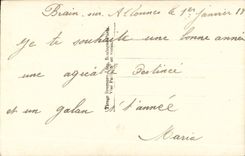 Brain, sur Allonnes le 1er Janvier 19
Je te souhaite une bonne année
une agréable Destinée
et un galan d'l'année
Maria